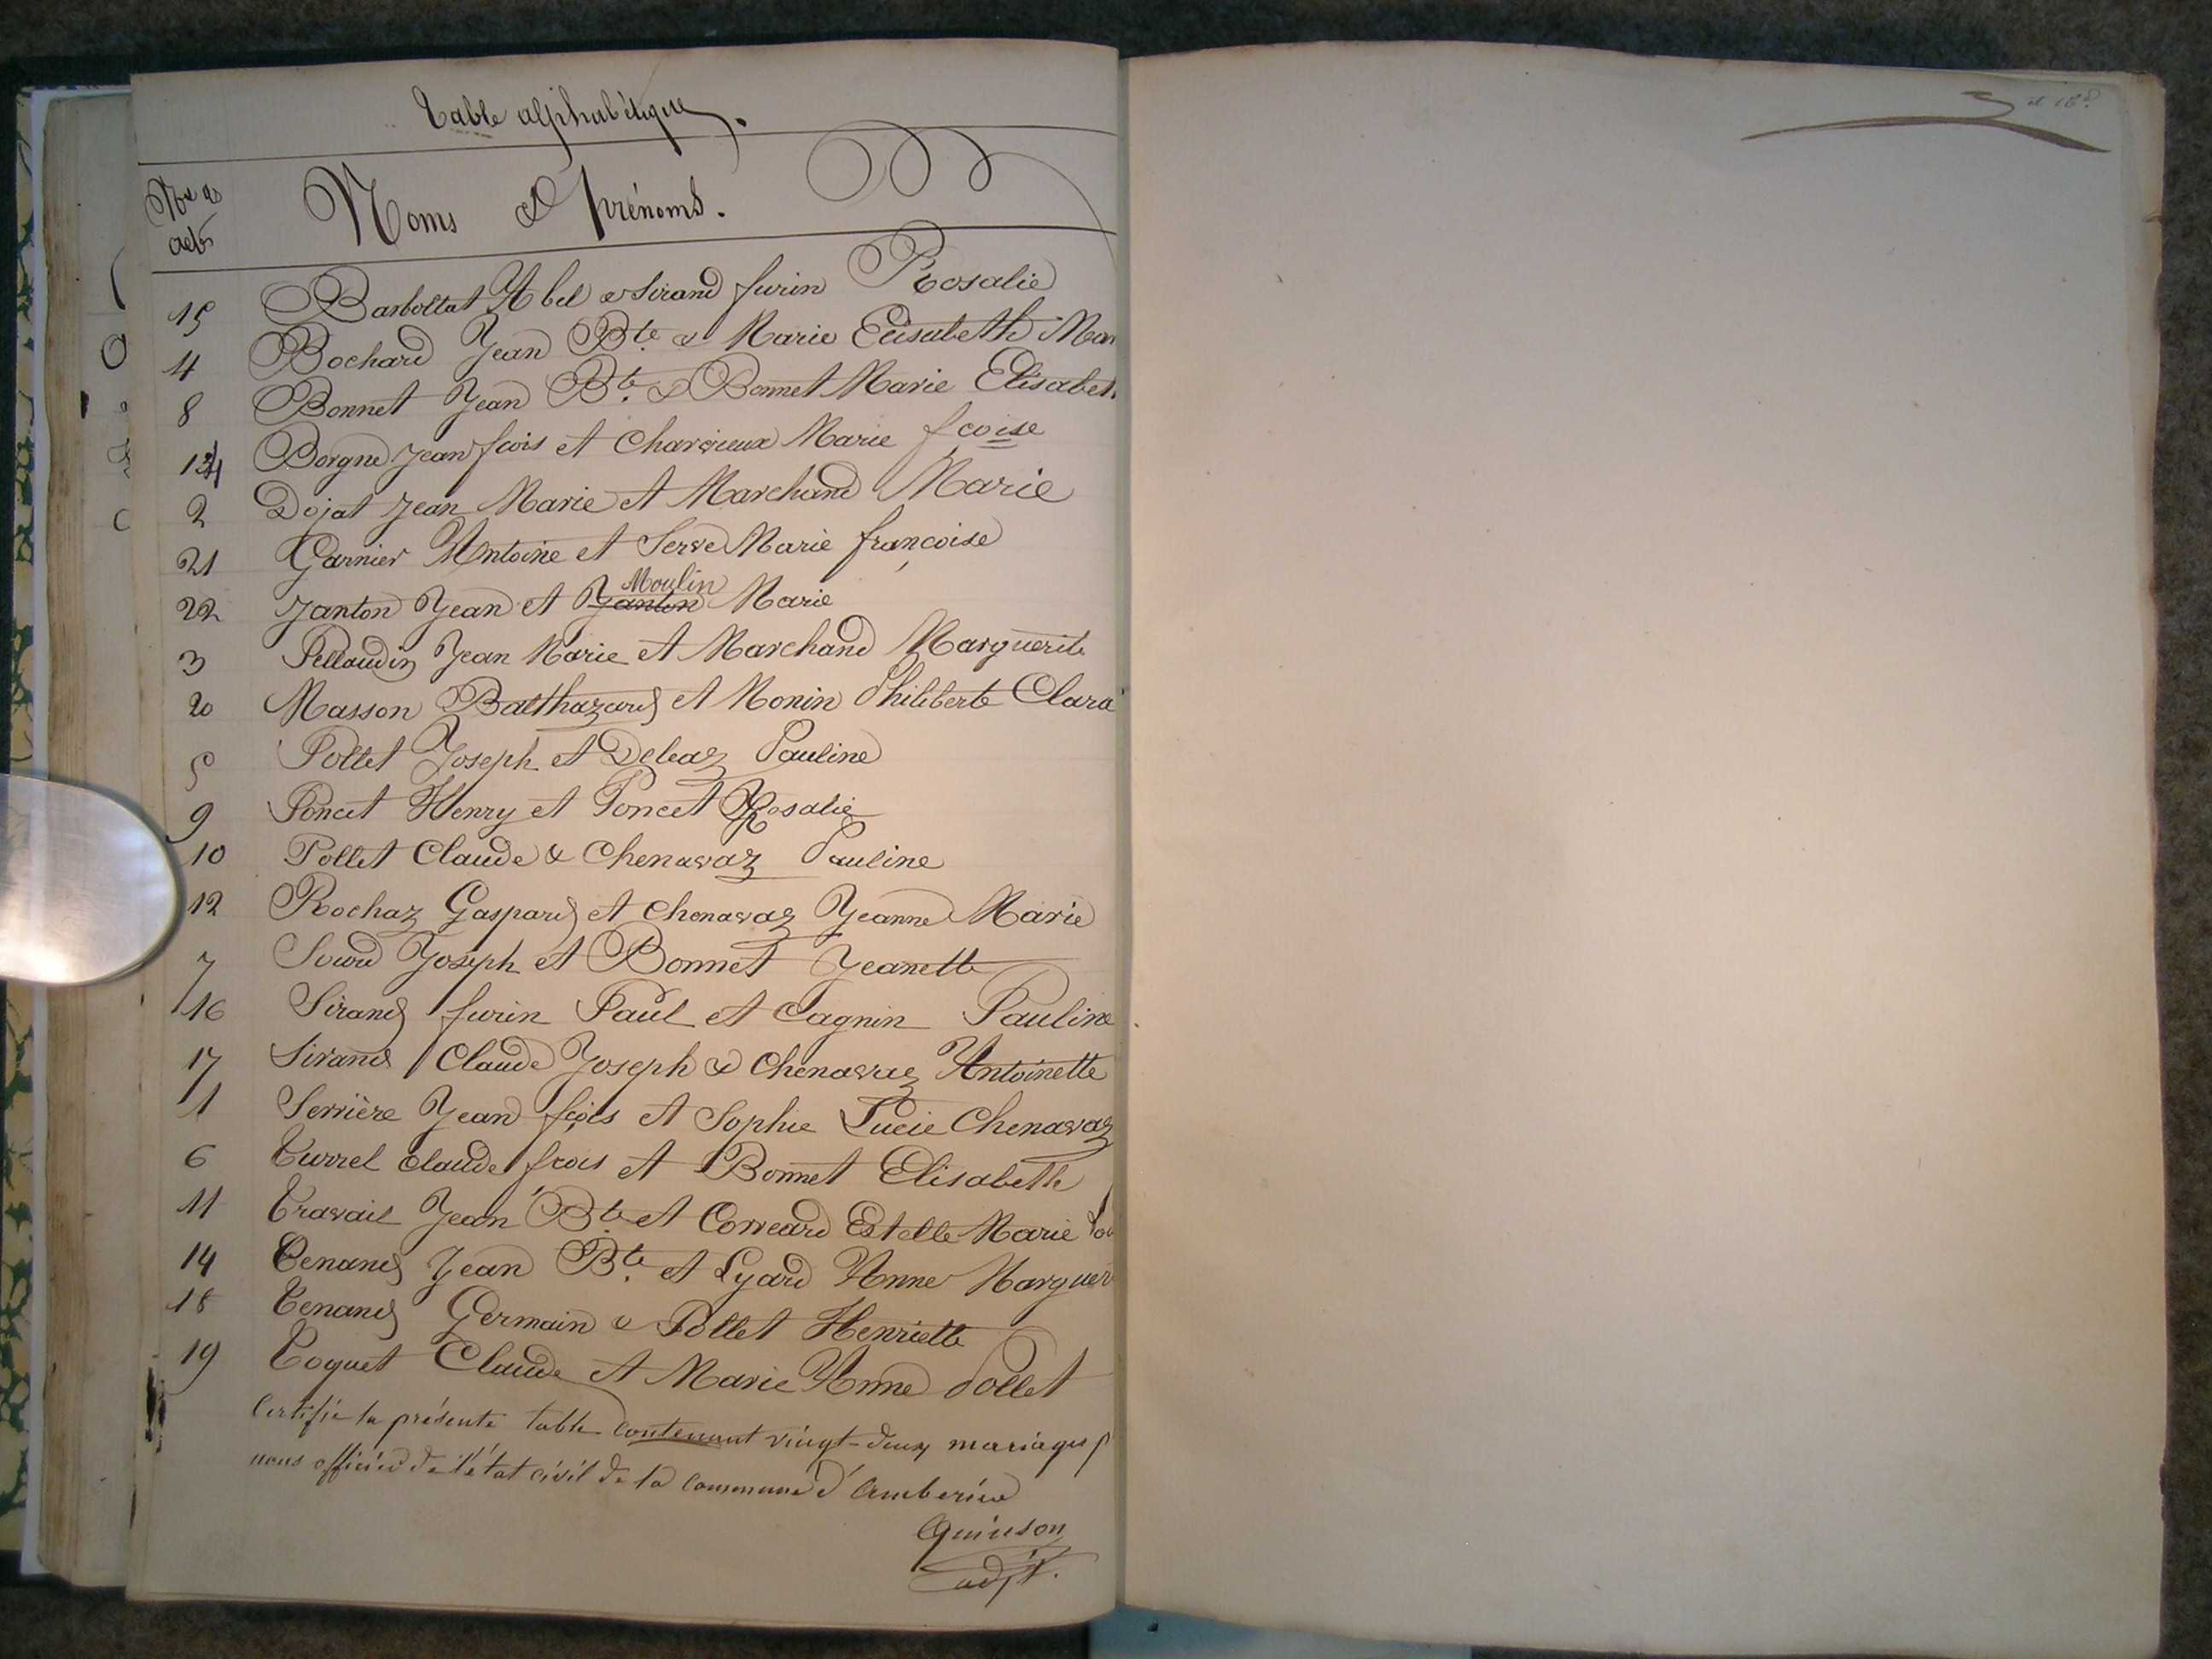 Table alphabétique.
Nos des actes
Noms & prénoms.
15 Barbollat Abel & Sirand furin Rosalie
4 Bochard Jean Bte & Marie Elisabeth Mar
8 Bonnet Jean Bte & Bonnet Marie Elisabet
Borgne Jean fcois et Charvieux Marie fcoise
2 Dojat Jean Marie et Marchand Marie
21 Garnier Antoine et Serve Marie françoise
Moulin
22 Janton Jean et Janton Marie
3 Pellaudin Jean Marie et Marchand Marguerite
20 Masson Balthazard et Monin Philiberte Clara
5 Pollet Joseph et Deleaz Pauline
9 Poncet Henry et Poncet Rosalie
10 Pollet Claude & Chenavaz Pauline
12 Rochaz Gaspard et Chenavaz Jeanne Marie
7 Sourd Joseph et Bonnet Jeanette
16 Sirand furin Paul et Cagnin Pauline
17 Sirand Claude Joseph & Chenavaz Antoinette
1 Serrière Jean fçois et Sophie Lucie Chenavaz
6 Turrel Claude fcois et Bonnet Elisabeth
11 Travail Jean Bte et Correard Estelle Marie Lou
14 Tenand Jean Bte et Lyard Anne Marguer
18 Tenand Germain & Pollet Henriette
19 Toquet Claude et Marie Anne Pollet
Certifié la présente table contenant vingt-deux mariages p
nous officier de l'état civil de la commune d'Amberieu
Quinson
adjt.